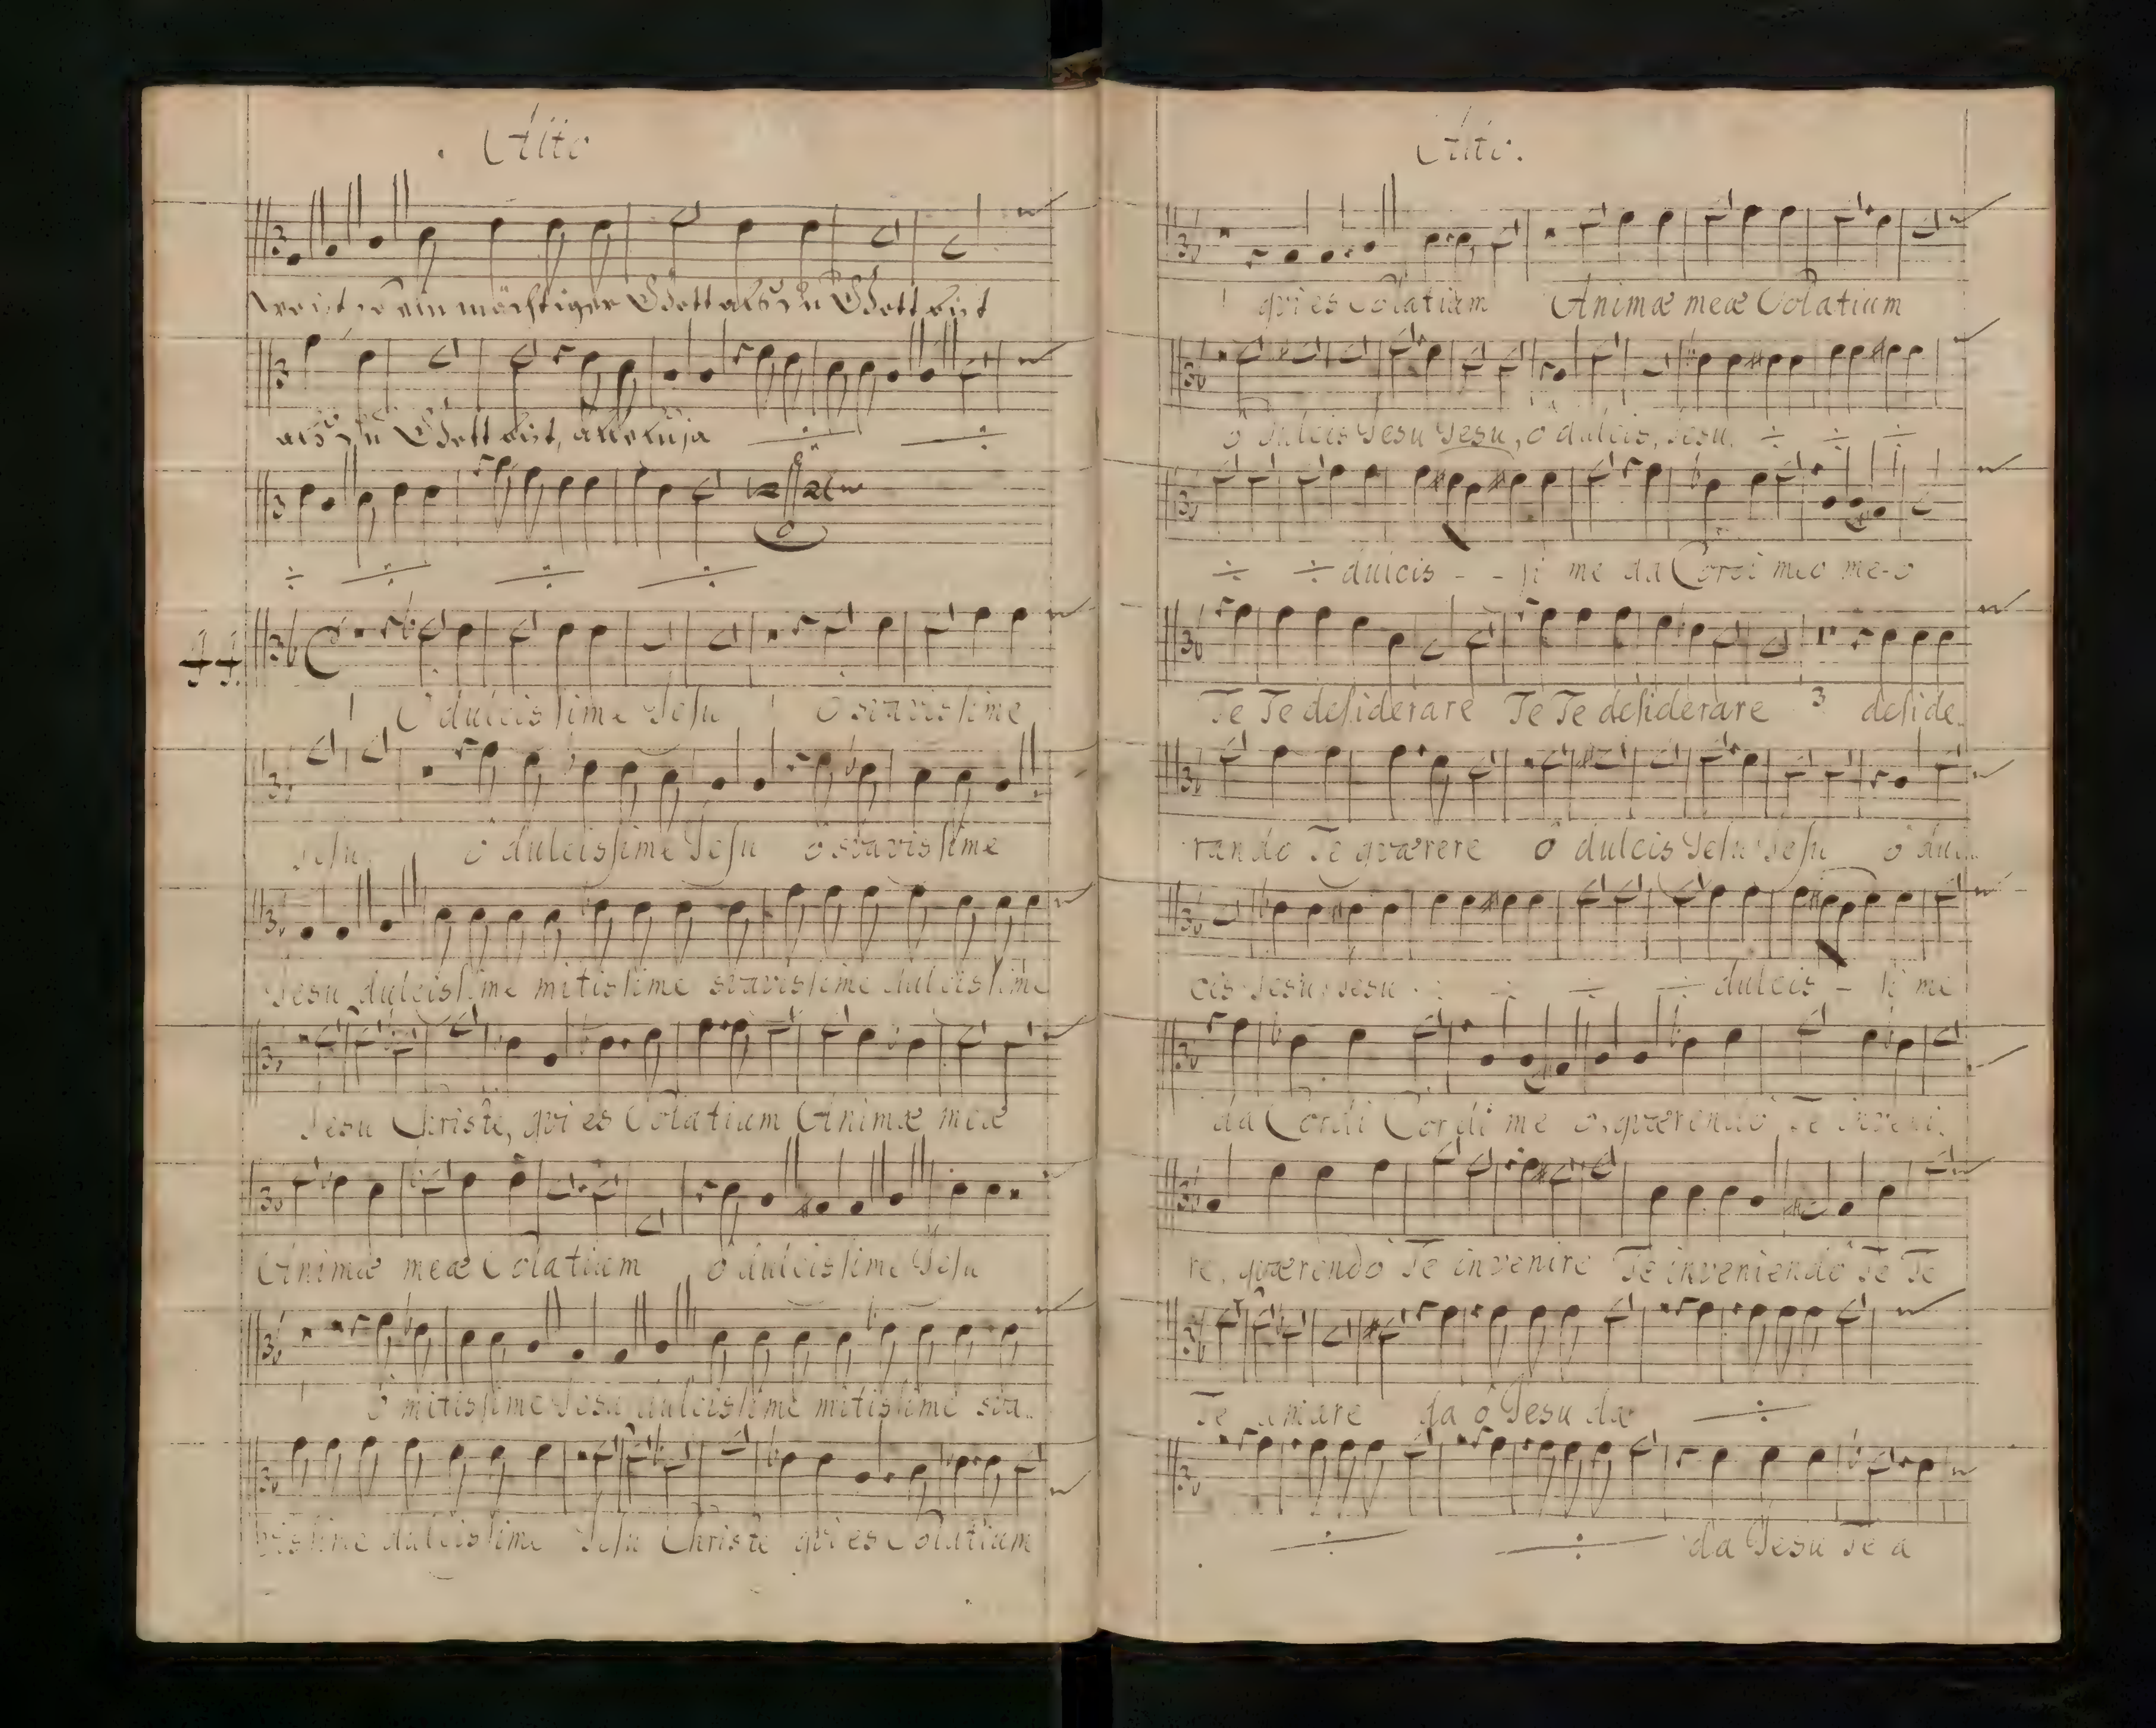 Alto
wo ist so ein mächtiger Gott als du Gott bist
als du Gott bist, alleluja
44.
O dulcissime Jesu O suavissime
Jesu o dulcissime Jesu o suavissime
Jesu dulcissime mitissime suavissime dulcissime
Jesu Christe, qvi es Solatium Animæ meæ
Animæ meæ Solatium o dulcissime Jesu
o mitissime Jesu dulcissime mitissime sua-
vissime dulcissime Jesu Christe qvi es Solatium
Alto.
qvi es Solatium Animæ meæ Solatium
O dulcis Jesu Jesu, o dulcis, Jesu.
dulcis - - si me da Cordi meo me-o
Te Te desiderare Te Te desiderare 3 deside-
rando Te qværere O dulcis Jesu Jesu o dul-
cis Jesu Jesu dulcis - si me
da Cordi Cordi me o, qværendo Te inveni-
re, qværendo Te invenire Te inveniendo Te Te
Te amare da o Jesu da
da Jesu Te a